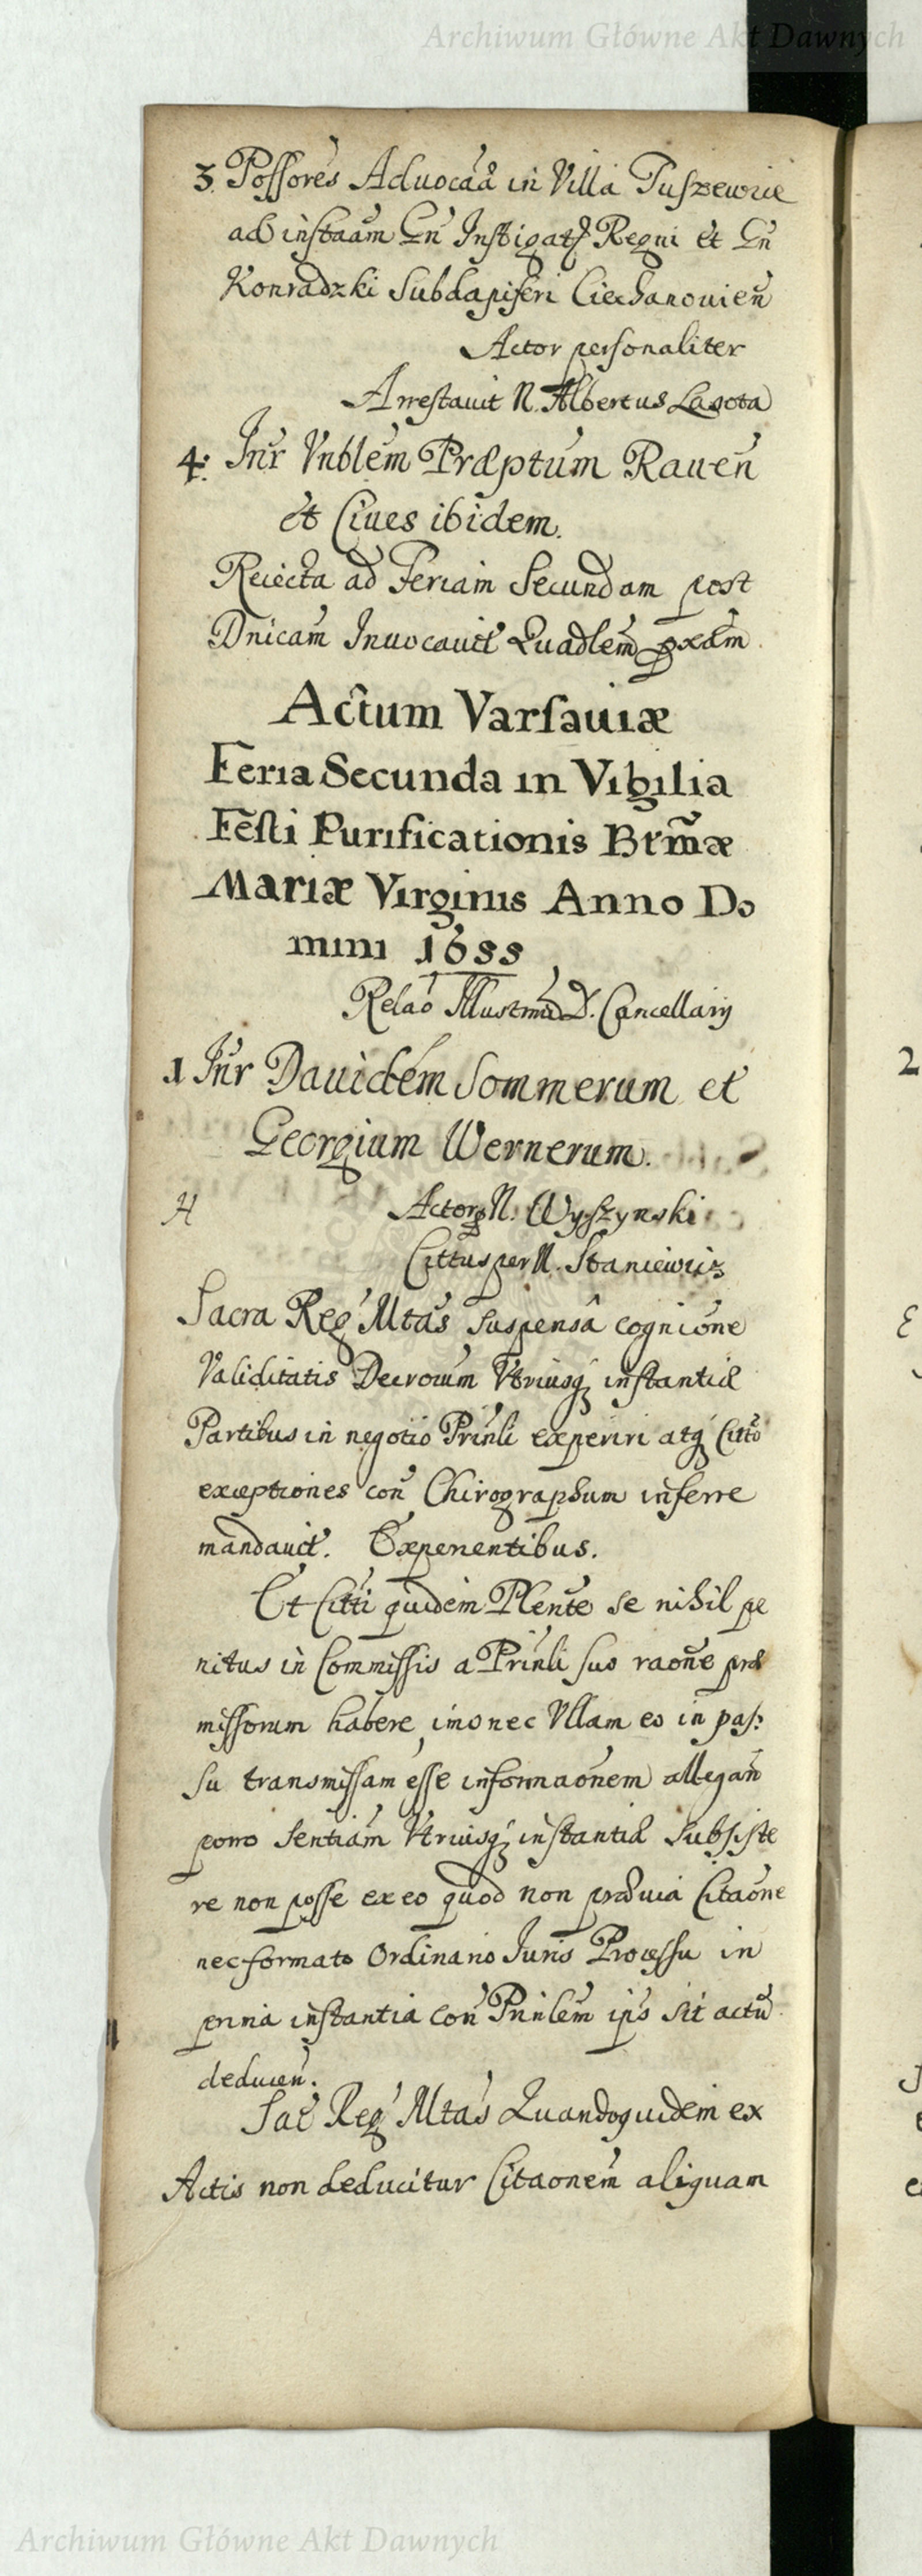 Archiwum Główne Akt Dawnych
3. Possores Aduocãã in Villa Tuszewicie
ad instaam Gn Instigats Regni et Gn
Konradzki Subdapiferi Ciechanouien
Actor personaliter
Arrestauit N. Albertus Lasota
4. Inr Vnblem Præptum Rauen
et Ciues ibidem.
Reiecta ad Feriam Secundam post
Dnicam Inuocauit Quadlem pxãm.
Actum Varsauiæ
Feria Secunda in Vigilia
Festi Purificationis Btmæ
Mariæ Virginis Anno Do
mini 1688
Relao Illustmi D. Cancellarij
1 Inr Dauidem Sommerum et
Georgium Wernerum.
H Actor N. Wyszynski
Cittus per N. Staniewicz
Sacra Reg Mtas suspensâ cognicone
Validitatis Decrorum Vtriusq instantiæ
Partibus in negotio Prinli experiri atq Citto
exceptiones con Chirographum inferre
mandauit. Experientibus.
Et Citti quidem Plente se nihil pe
nitus in Commissis a Prinli suo raone præ
missorum habere, imo nec Vllam eo in pas:
su transmissam esse informaonem allegan
porro Sentiam Vtriusq instantiæ Subsiste
re non posse ex eo quod non præuia Citaone
nec formato Ordinario Iuris Processu in
prima instantia con Prinlem ips sit actu
deducen.
Sac Reg Mtas Quandoquidem ex
Actis non deducitur Citaonem aliquam
2
Archiwum Główne Akt Dawnych